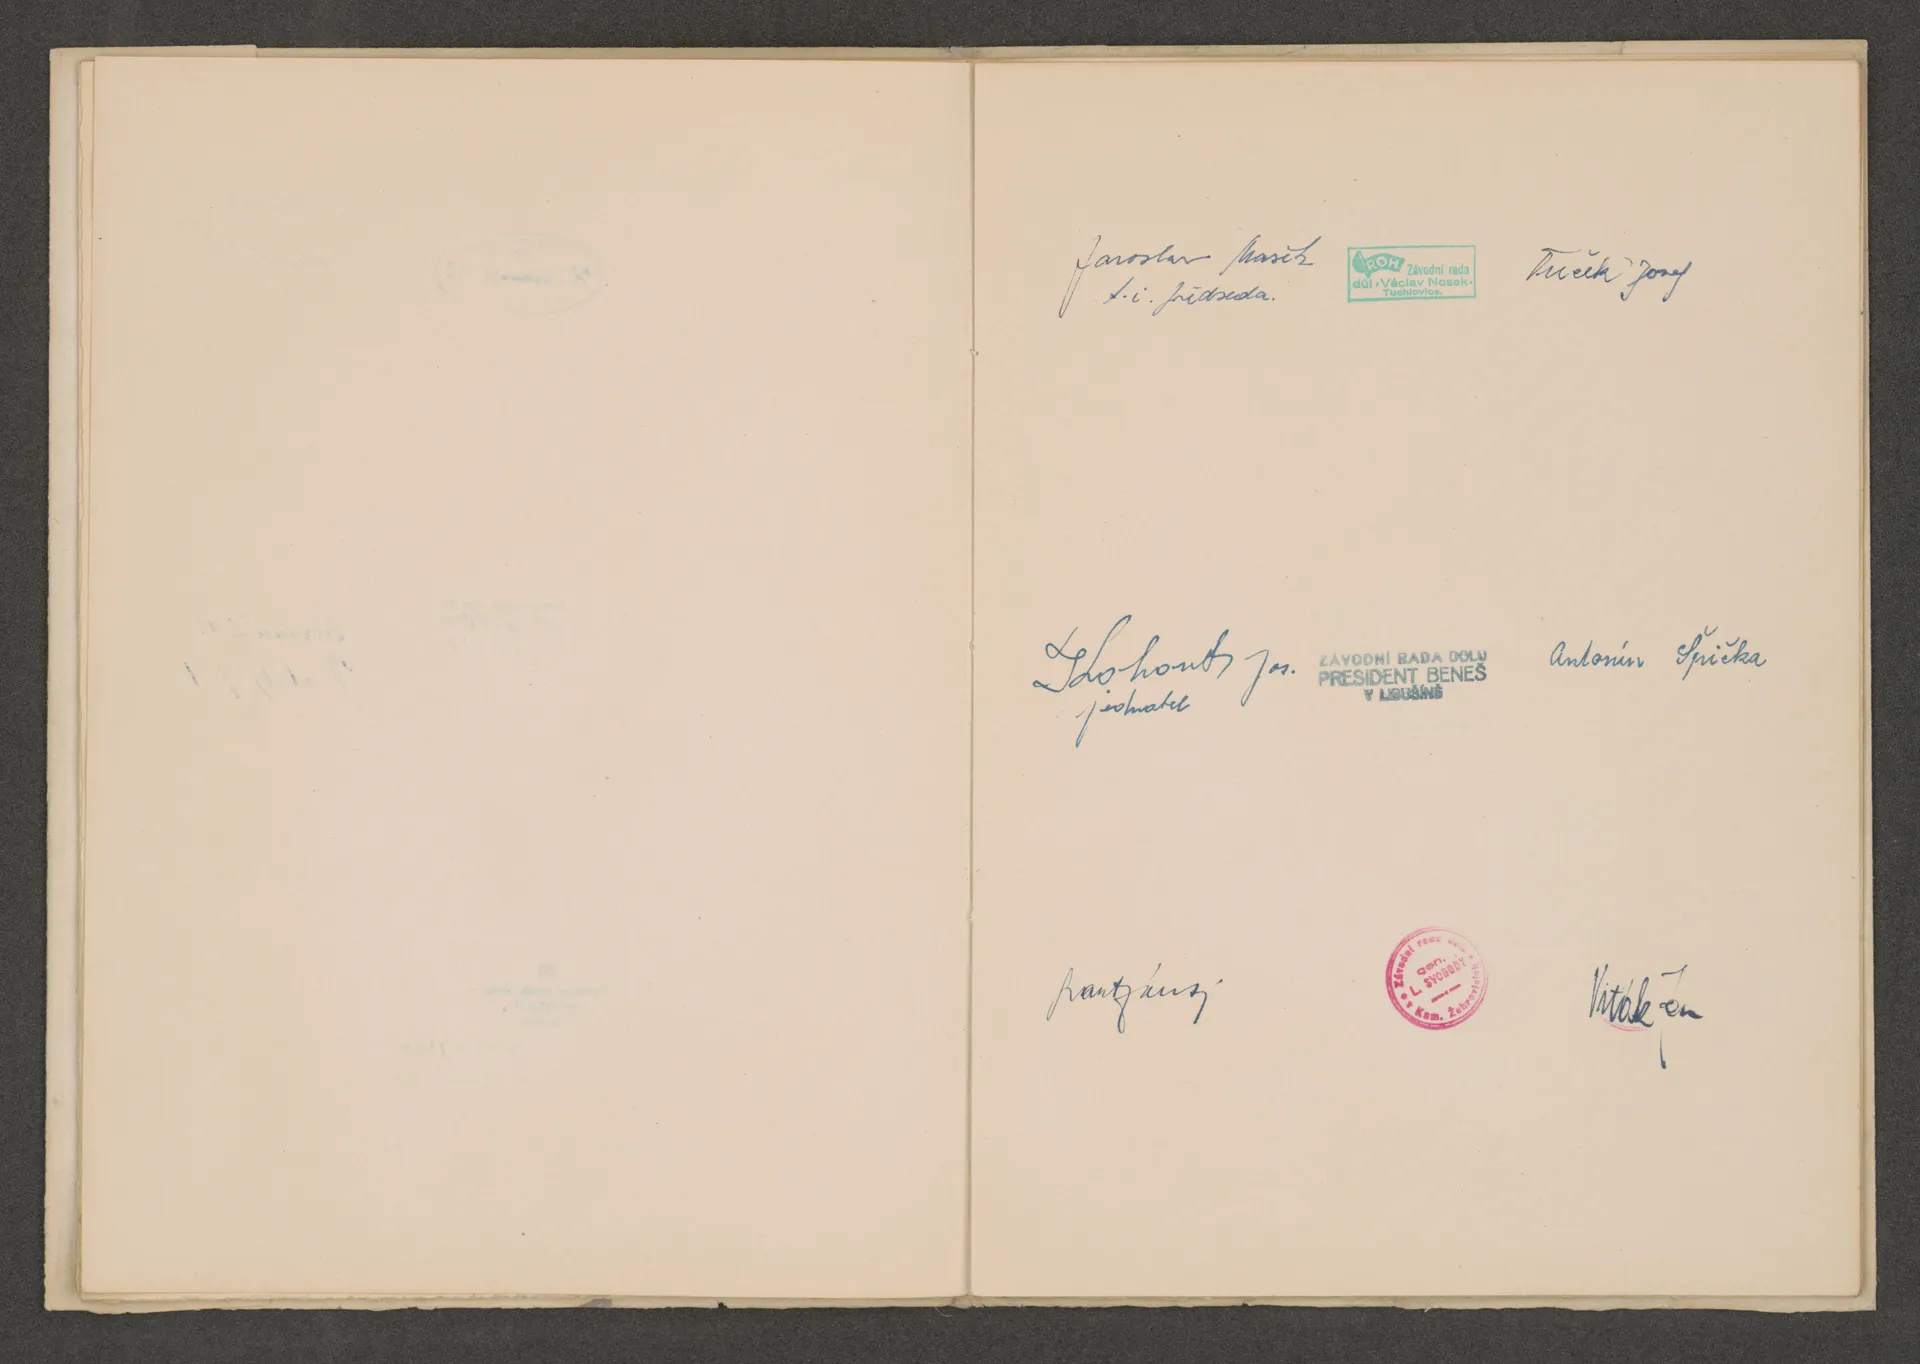 Jaroslav Mašek
t. i. předseda.
ROH Závodní rada
důl "Václav Nosek"
Tuchlovice.
Josef
Kohout Jos.
jednatel
ZÁVODNÍ RADA DOLU
PRESIDENT BENEŠ
V LIBUŠÍNĚ
Antonín Špička
Závodní rada
gen.
L. SVOBODY
v Kam. Žehrovicích
Viták Jan